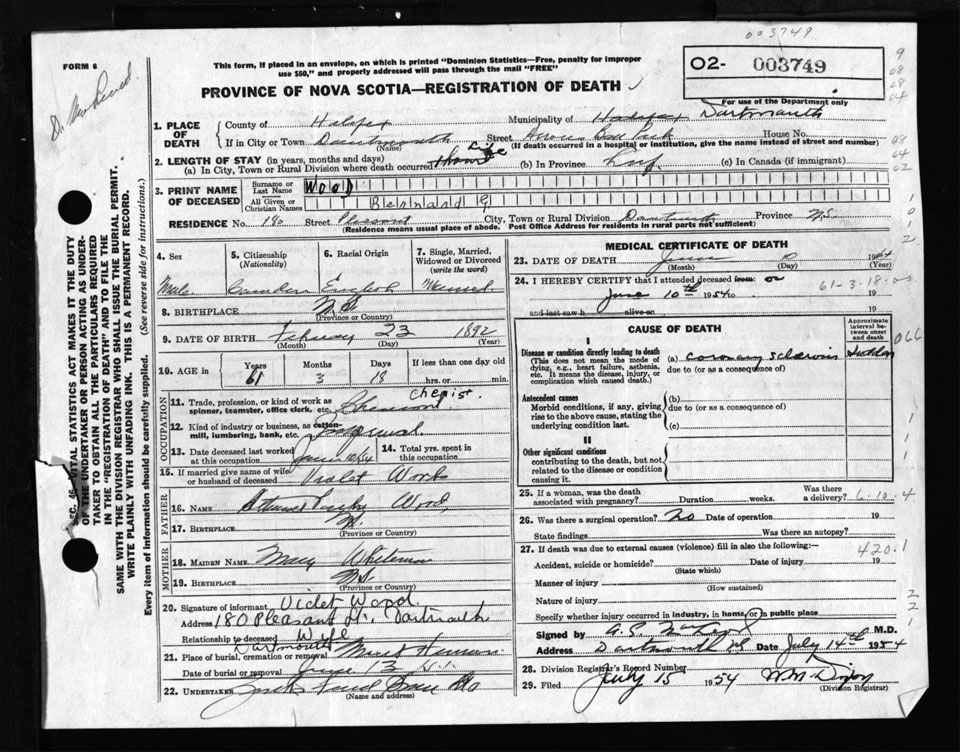 003749
FORM 6
This form, if placed in an envelope, on which is printed "Dominion Statistics—Free, penalty for improper
use $50," and properly addressed will pass through the mail "FREE"
O2- 003749
For use of the Department only
PROVINCE OF NOVA SCOTIA—REGISTRATION OF DEATH
Dartmouth
1. PLACE OF DEATH
County of Halifax
Municipality of Halifax
If in City or Town Dartmouth (Name) Street House No.
(If death occurred in a hospital or institution, give the name instead of street and number)
2. LENGTH OF STAY (in years, months and days)
(a) In City, Town or Rural Division where death occurred Life (b) In Province Life (c) In Canada (if immigrant)
3. PRINT NAME OF DECEASED
Surname or Last Name WOOD
All Given or Christian Names Bernard
RESIDENCE No. 180 Street Pleasant City, Town or Rural Division Dartmouth Province N.S.
(Residence means usual place of abode. Post Office Address for residents in rural parts not sufficient)
4. Sex
Male
5. Citizenship
(Nationality)
Canadian
6. Racial Origin
English
7. Single, Married, Widowed or Divorced
(write the word)
Married
8. BIRTHPLACE N.S.
(Province or Country)
9. DATE OF BIRTH February 23 1892
(Month) (Day) (Year)
10. AGE in
Years 61
Months 3
Days 18
If less than one day old
hrs. or min.
OCCUPATION
11. Trade, profession, or kind of work as
spinner, teamster, office clerk, etc.
Chemist
12. Kind of industry or business, as cotton-
mill, lumbering, bank, etc.
13. Date deceased last worked
at this occupation
14. Total yrs. spent in
this occupation
15. If married give name of wife
or husband of deceased Violet Wood
FATHER
16. Name Wood
17. Birthplace N.S.
(Province or Country)
MOTHER
18. MAIDEN NAME Mary
19. BIRTHPLACE N.S.
(Province or Country)
20. Signature of informant Violet Wood
Address 180 Pleasant St. Dartmouth
Relationship to deceased Wife
Dartmouth
21. Place of burial, cremation or removal Mount Hermon
Date of burial or removal June 13
22. UNDERTAKER
(Name and address)
MEDICAL CERTIFICATE OF DEATH
23. DATE OF DEATH June 10 1954
(Month) (Day) (Year)
24. I HEREBY CERTIFY that I attended deceased from: on
61-3-18
June 10th 1954 to 19
and last saw h alive on 19
CAUSE OF DEATH
Approximate interval between onset and death
I
Disease or condition directly leading to death
(This does not mean the mode of
dying, e.g., heart failure, asthenia,
etc. It means the disease, injury, or
complication which caused death.)
(a) coronary sclerosis Sudden
due to (or as a consequence of)
Antecedent causes
Morbid conditions, if any, giving
rise to the above cause, stating the
underlying condition last.
(b)
due to (or as a consequence of)
(c)
II
Other significant conditions
contributing to the death, but not
related to the disease or condition
causing it.
25. If a woman, was the death
associated with pregnancy? Duration weeks. Was there a delivery?
6-10-4
26. Was there a surgical operation? No Date of operation 19
State findings Was there an autopsy?
27. If death was due to external causes (violence) fill in also the following:—
420.1
Accident, suicide or homicide? Date of injury 19
(State which)
Manner of injury
(How sustained)
Nature of injury
Specify whether injury occurred in industry, in home, or in public place
Signed by M.D.
Address Dartmouth NS July 14th 1954
28. Division Registrar's Record Number
29. Filed July 15 1954
(Division Registrar)
Sec. 46—VITAL STATISTICS ACT MAKES IT THE DUTY
OF THE UNDERTAKER OR PERSON ACTING AS UNDER-
TAKER TO OBTAIN ALL THE PARTICULARS REQUIRED
IN THE "REGISTRATION OF DEATH" AND TO FILE THE
SAME WITH THE DIVISION REGISTRAR WHO SHALL ISSUE THE BURIAL PERMIT.
WRITE PLAINLY WITH UNFADING INK. THIS IS A PERMANENT RECORD.
Every item of information should be carefully supplied. (See reverse side for instructions.)